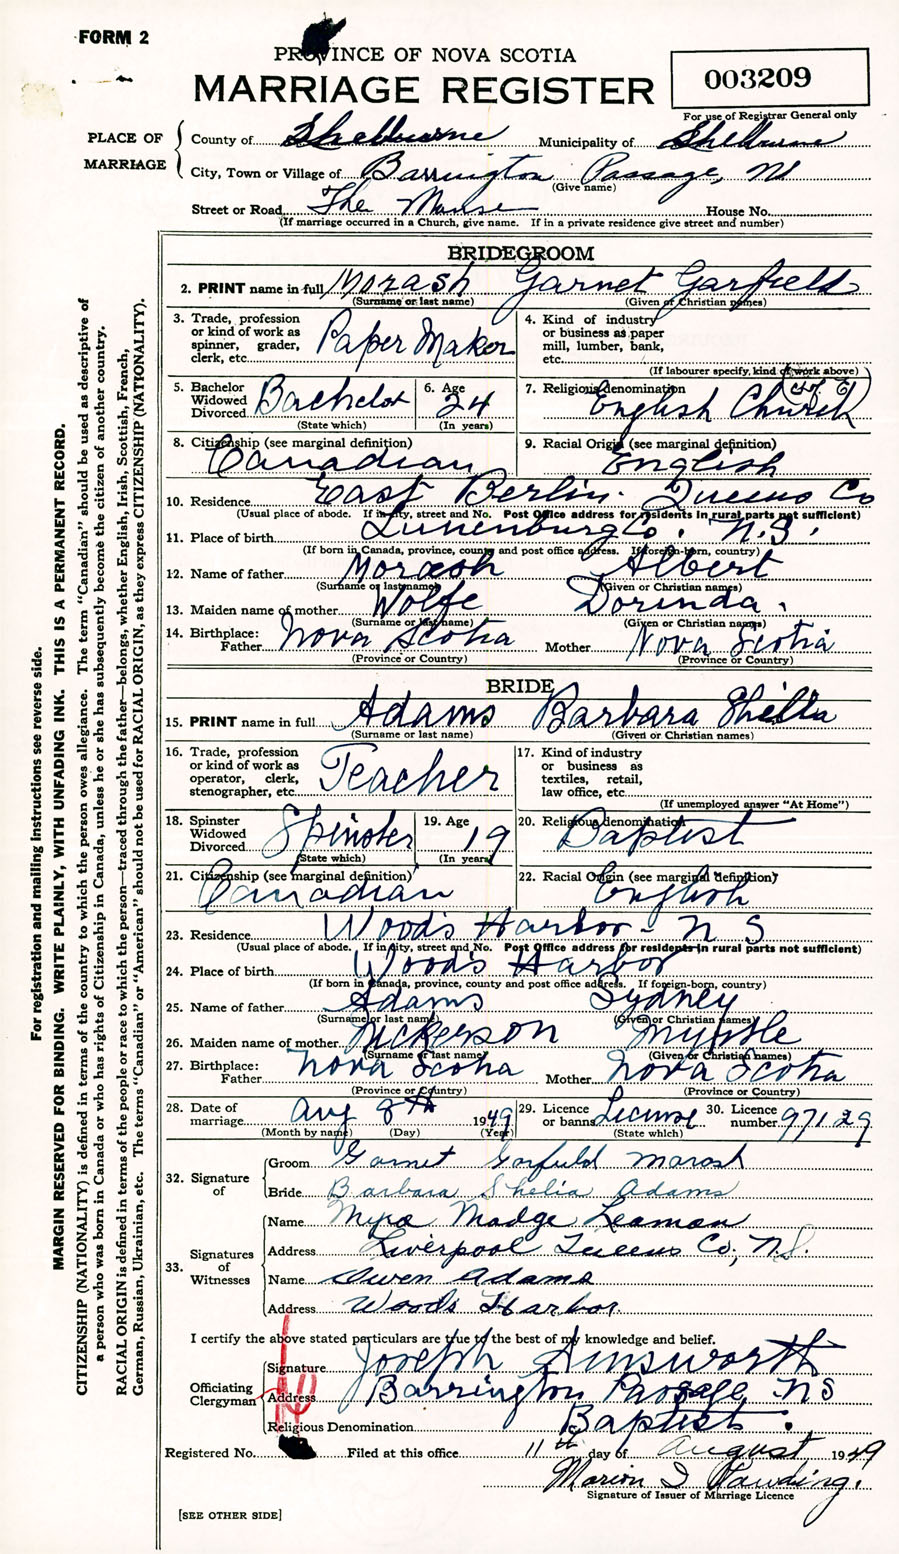 FORM 2
PROVINCE OF NOVA SCOTIA
MARRIAGE REGISTER
003209
For use of Registrar General only
PLACE OF MARRIAGE
County of Shelburne Municipality of Shelburne
City, Town or Village of Barrington Passage, NS
(Give name)
Street or Road The Manse House No.
(If marriage occurred in a Church, give name. If in a private residence give street and number)
BRIDEGROOM
2. PRINT name in full Morash Garnet Garfield
(Surname or last name) (Given or Christian names)
3. Trade, profession or kind of work as spinner, grader, clerk, etc. Paper Maker
4. Kind of industry or business as paper mill, lumber, bank, etc.
(If labourer specify, kind of work above)
5. Bachelor Widowed Divorced Bachelor
(State which)
6. Age 24
(In years)
7. Religious denomination English Church (C of E)
8. Citizenship (see marginal definition) Canadian
9. Racial Origin (see marginal definition) English
10. Residence East Berlin. Queens Co
(Usual place of abode. If in city, street and No. Post Office address for residents in rural parts not sufficient)
11. Place of birth Lunenburg Co. N.S.
(If born in Canada, province, county and post office address. If foreign-born, country)
12. Name of father Morash Albert
(Surname or last name) (Given or Christian names)
13. Maiden name of mother Wolfe Dorinda.
(Surname or last name) (Given or Christian names)
14. Birthplace: Father Nova Scotia Mother Nova Scotia
(Province or Country) (Province or Country)
BRIDE
15. PRINT name in full Adams Barbara Shelia
(Surname or last name) (Given or Christian names)
16. Trade, profession or kind of work as operator, clerk, stenographer, etc. Teacher
17. Kind of industry or business as textiles, retail, law office, etc.
(If unemployed answer "At Home")
18. Spinster Widowed Divorced Spinster
(State which)
19. Age 19
(In years)
20. Religious denomination Baptist
21. Citizenship (see marginal definition) Canadian
22. Racial Origin (see marginal definition) English
23. Residence Wood's Harbor - N S
(Usual place of abode. If in city, street and No. Post Office address for residents in rural parts not sufficient)
24. Place of birth Wood's Harbor
(If born in Canada, province, county and post office address. If foreign-born, country)
25. Name of father Adams Sydney
(Surname or last name) (Given or Christian names)
26. Maiden name of mother Nickerson Myrtle
(Surname or last name) (Given or Christian names)
27. Birthplace: Father Nova Scotia Mother Nova Scotia
(Province or Country) (Province or Country)
28. Date of marriage Aug 8th 1949
(Month by name) (Day) (Year)
29. Licence or banns License
(State which)
30. Licence number 97129
32. Signature of
Groom Garnet Garfield Morash
Bride Barbara Shelia Adams
33. Signatures of Witnesses
Name Myra Madge Leaman
Address Liverpool Queens Co, N.S.
Name Owen Adams
Address Woods Harbor.
I certify the above stated particulars are true to the best of my knowledge and belief.
Officiating Clergyman
Signature Joseph Ainsworth
Address Barrington Passage, NS
Religious Denomination Baptist.
Registered No. Filed at this office 11th day of August 1949
Marion I
Signature of Issuer of Marriage Licence
[SEE OTHER SIDE]
For registration and mailing instructions see reverse side.
MARGIN RESERVED FOR BINDING. WRITE PLAINLY, WITH UNFADING INK. THIS IS A PERMANENT RECORD.
CITIZENSHIP (NATIONALITY) is defined in terms of the country to which the person owes allegiance. The term "Canadian" should be used as descriptive of
a person who was born in Canada or who has rights of Citizenship in Canada, unless he or she has subsequently become the citizen of another country.
RACIAL ORIGIN is defined in terms of the people or race to which the person—traced through the father—belongs, whether English, Irish, Scottish, French,
German, Russian, Ukrainian, etc. The terms "Canadian" or "American" should not be used for RACIAL ORIGIN, as they express CITIZENSHIP (NATIONALITY).